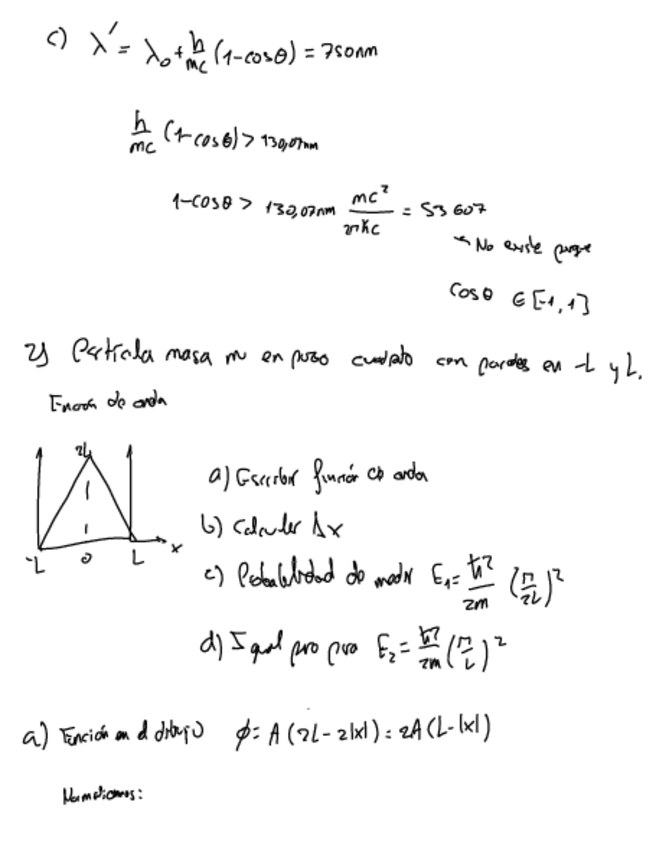 c) λ' = λ₀ + h/mc (1-cosθ) = 780nm
h/mc (1-cosθ) > 130,07nm
1-cosθ > 130,07nm mc²/2πħc = 53 607
No existe porque
cosθ ∈ [-1, 1]
2) Partícula masa m en pozo cuadrado con paredes en -L y L.
Función de onda
2L
-L 0 L x
a) Escribir función de onda
b) Calcular Δx
c) Probabilidad de medir E₁ = ħ²/2m (π/2L)²
d) Igual pero para E₂ = ħ²/2m (π/L)²
a) Función en el dibujo ϕ = A (2L - 2|x|) = 2A (L - |x|)
Normalizamos: